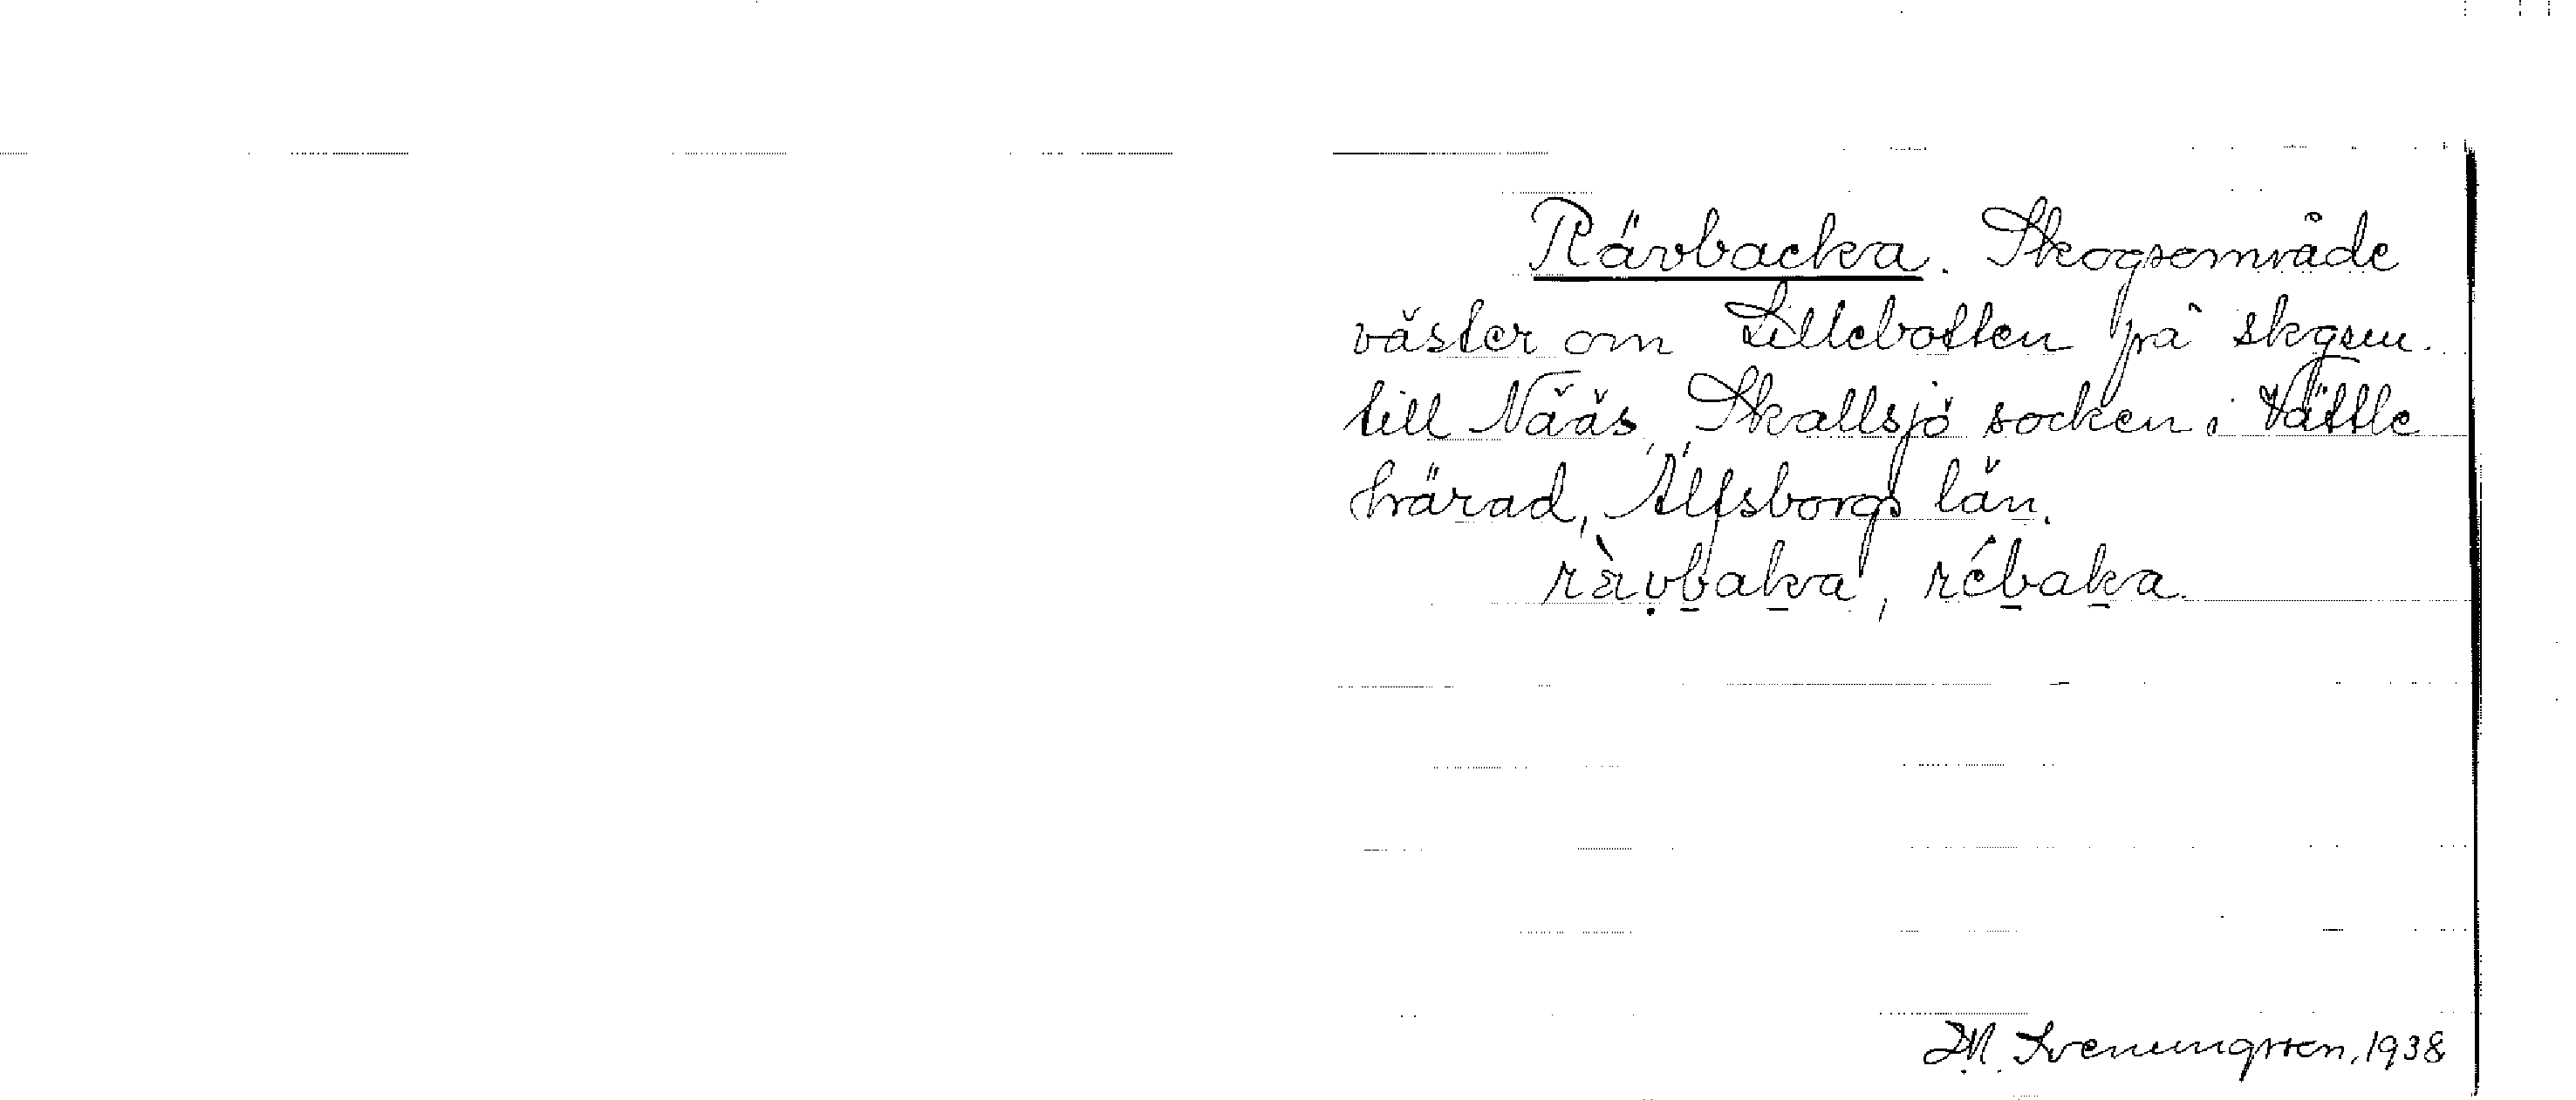 Rävbacka. Skogsområde
väster om Lillebotten på skgsm.
till Nääs, Skallsjö socken i Vättle
härad, Älfsborgs län.
rävbaka, rébaka.
M. Svenungsson, 1938